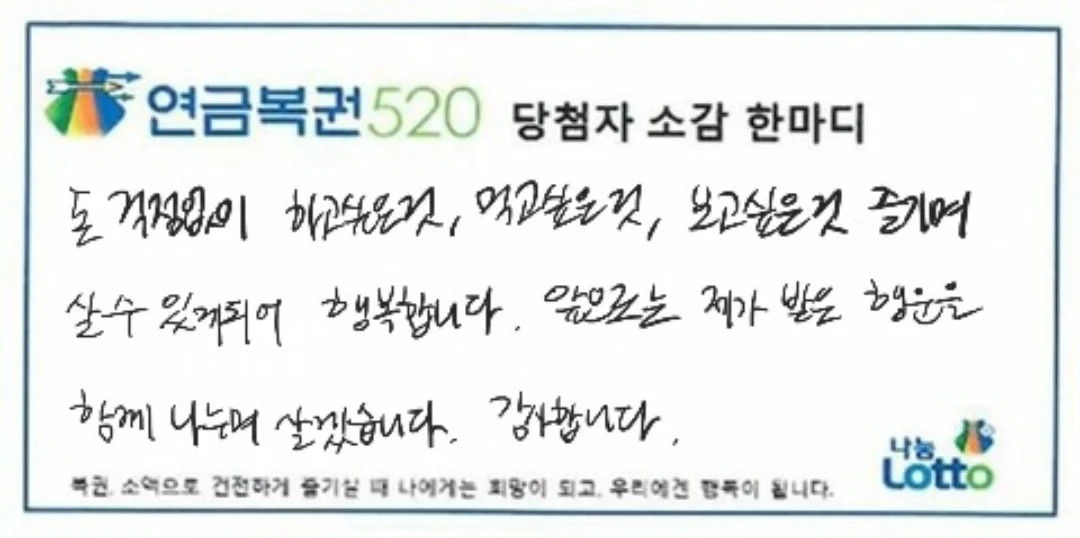 연금복권520 당첨자 소감 한마디
돈 걱정없이 하고싶은것, 먹고싶은것, 보고싶은것 즐기며
살 수 있게되어 행복합니다. 앞으로는 제가 받은 행운을
함께 나누며 살겠습니다. 감사합니다.
나눔
Lotto
복권, 소액으로 건전하게 즐기실 때 나에게는 희망이 되고, 우리에겐 행복이 됩니다.